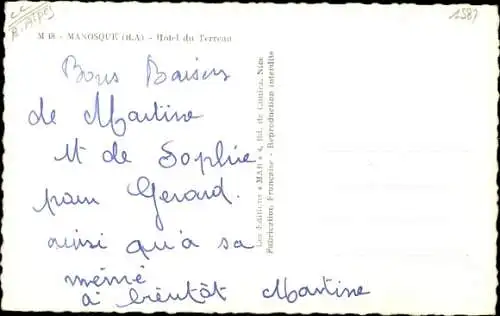 CC
B. Alpes
1587
M 48 - MANOSQUE (H.A) - Hotel du Terreau
Bons Baisers
de Martine
et de Sophie
pour Gerard.
ainsi qu'a sa
mémé
a bientôt Martine
Les Editions « MAR » 4, Bd. de Cimiez, Nice
Fabrication Française - Reproduction interdite